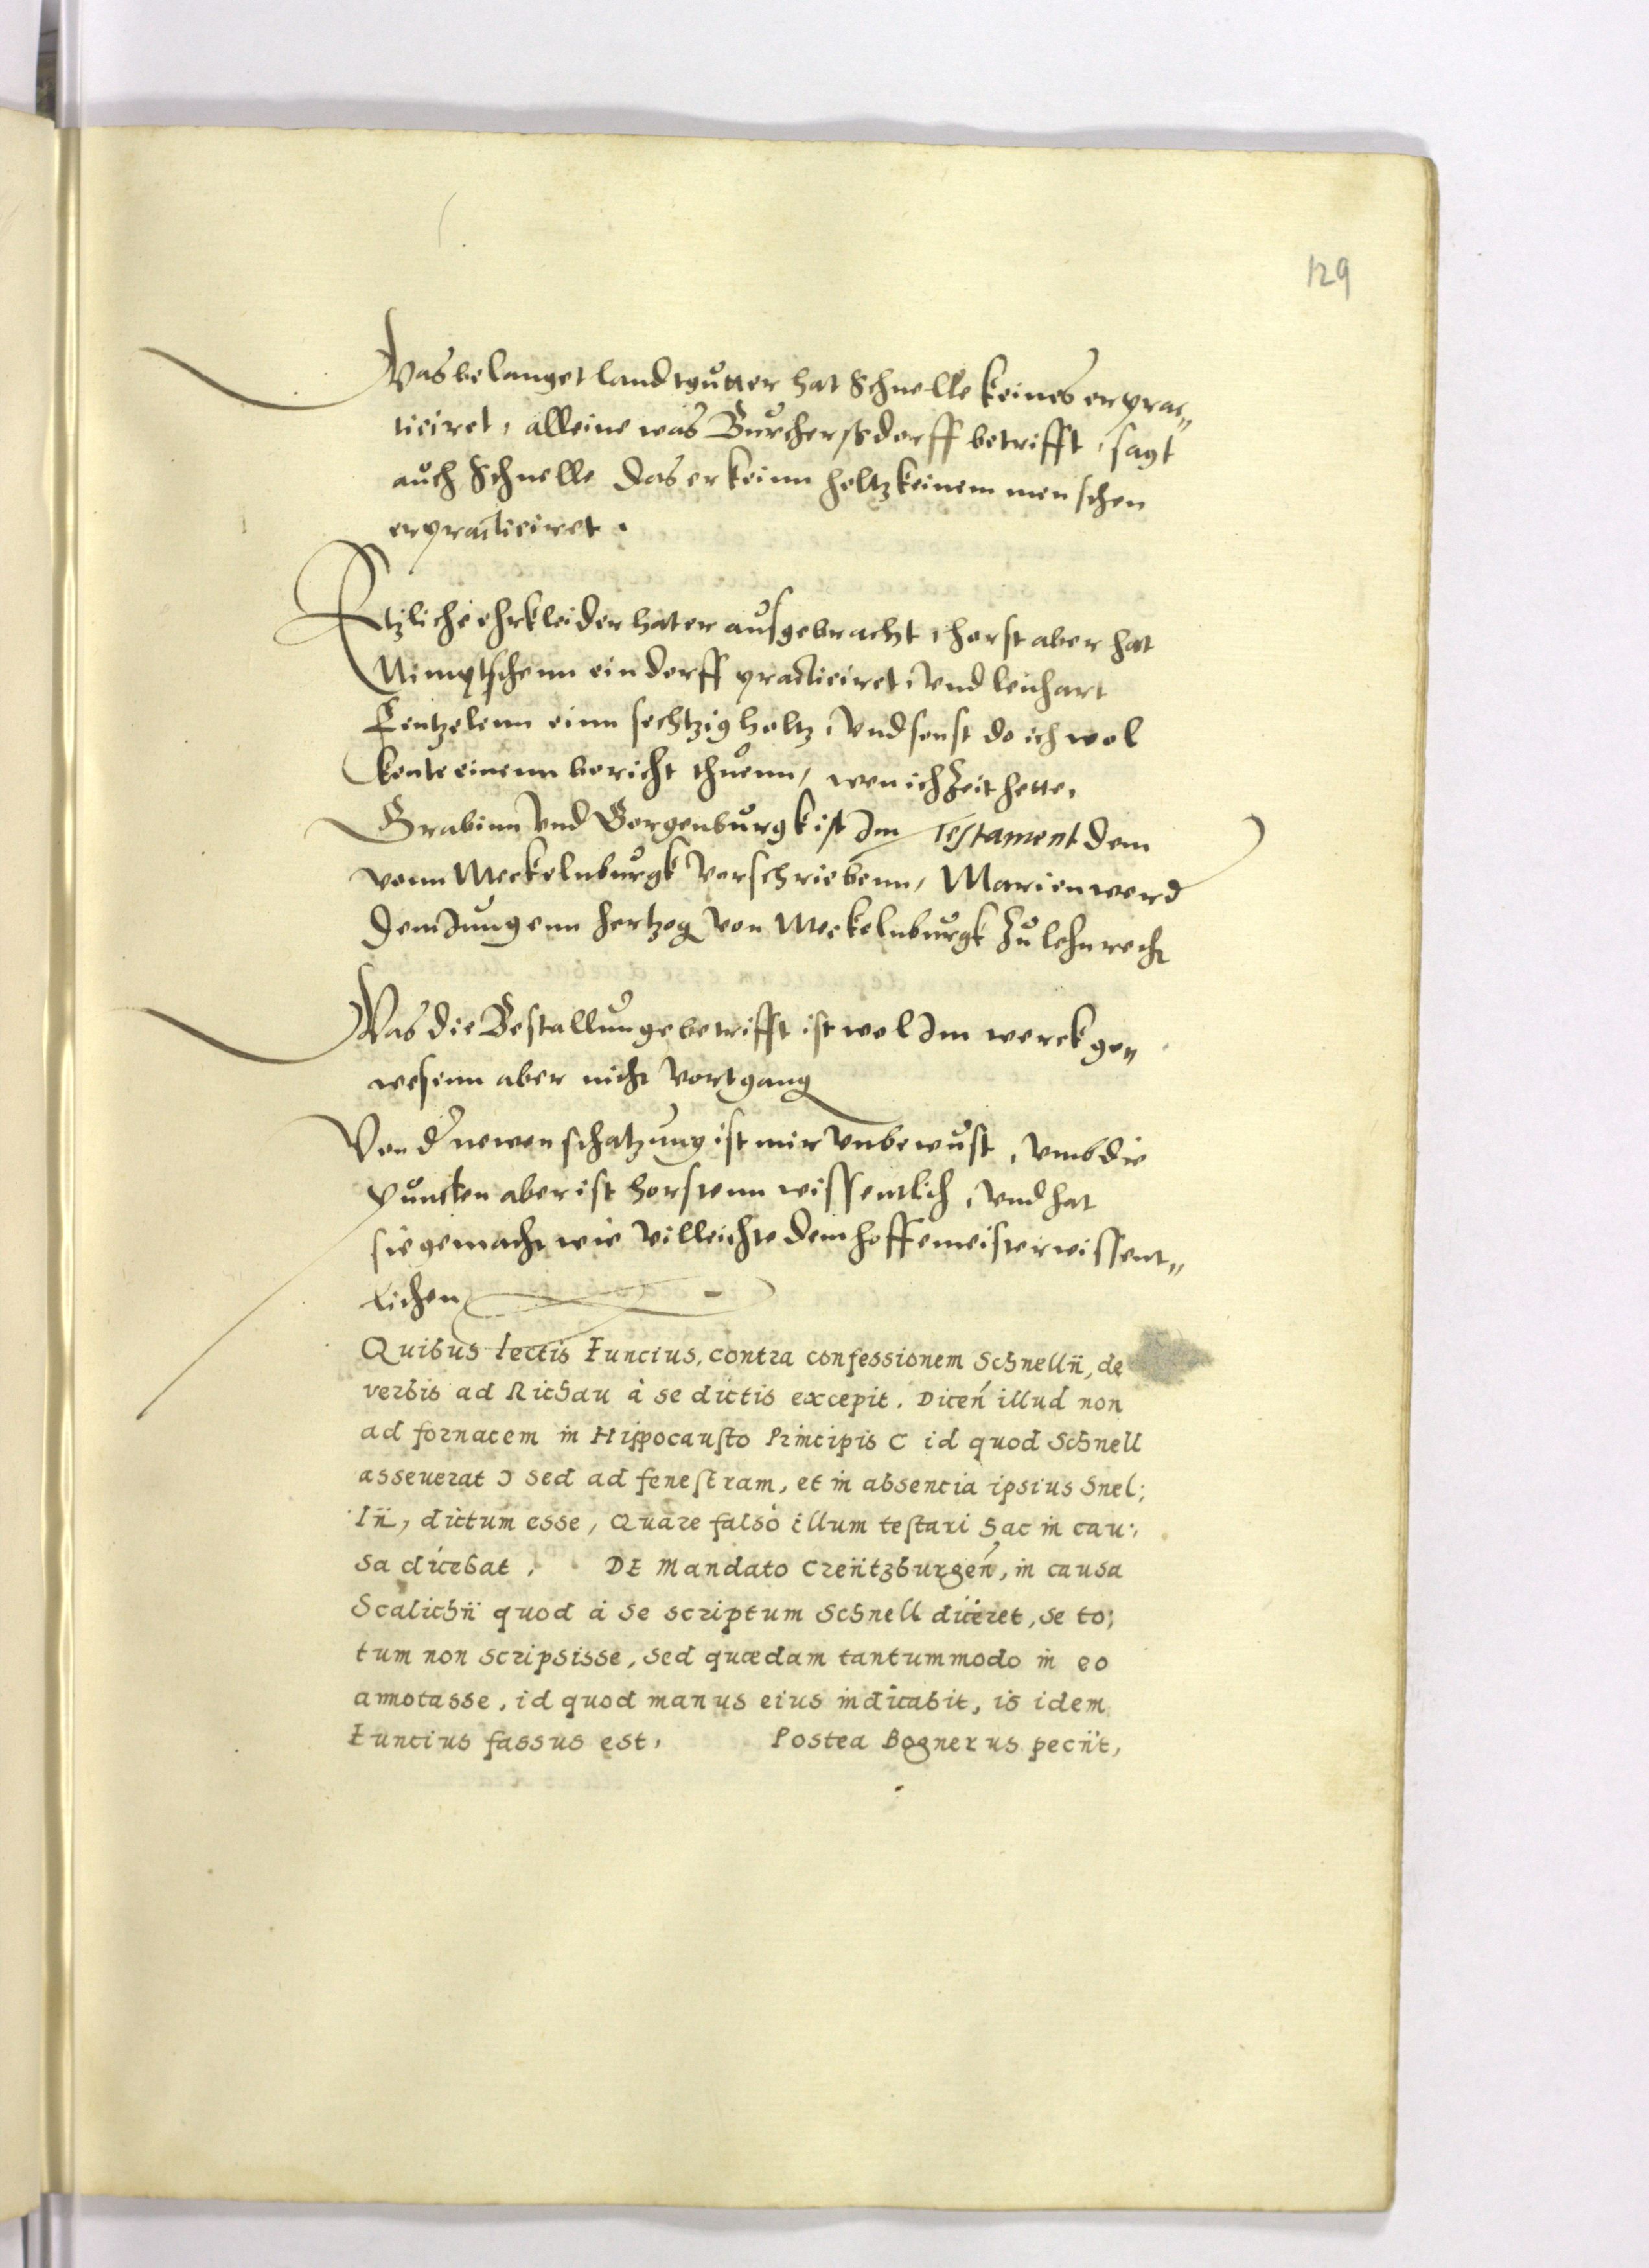 129
Was belanget landtgütter hat Schnelle keines erprac„
ticiret, alleine was Burcherßdorff betrifft, sagt
auch Schnelle das er keinn holtz keinem menschen
erpracticiret.
Etzliche ehrkleider hat er ausgebracht, horst aber hat
Nimptschenn ein dorff practiciret, Vnd leichart
Centzelenn einn sechtzig holtz, Vnd sonst do ich wol
konte einenn bericht thuenn, wen ich Zeit hette,
Grabinn Vnd Gorgenburgk ist Im Testament dem
vonn Meckelnburgk Vorschriebenn, Marienwerd
dem Jungenn hertzog Von Meckelnburgk Zu lehnrecht
Was die Bestallunge betrifft ist wol Im werck ge„
wesenn aber nicht Vortgang
Von d' newen schatzung ist mir Vnbewust, Vmb die
puncten aber ist horstenn wissentlich, Vnd hat
sie gemacht wie Villeichte dem hoffemeister wissent„
lichen
Quibus lectis Funcius, contra confessionem Schnellii, de
verbis ad Richau à se dictis excepit. Dicen illud non
ad fornacem in Hippocausto Principis ( id quod Schnell
asseuerat ) sed ad fenestram, et in absencia ipsius Snel:
lii, dictum esse, Quare falsò illum testari hac in cau:
sa dicebat. DE Mandato Creutzburgen, in causa
Scalichii quod à se scriptum Schnell diceret, se to:
tum non scripsisse, sed quædam tantummodo in eo
annotasse, id quod manus eius indicabit, is idem
Funcius fassus est. Postea Bognerus peciit,